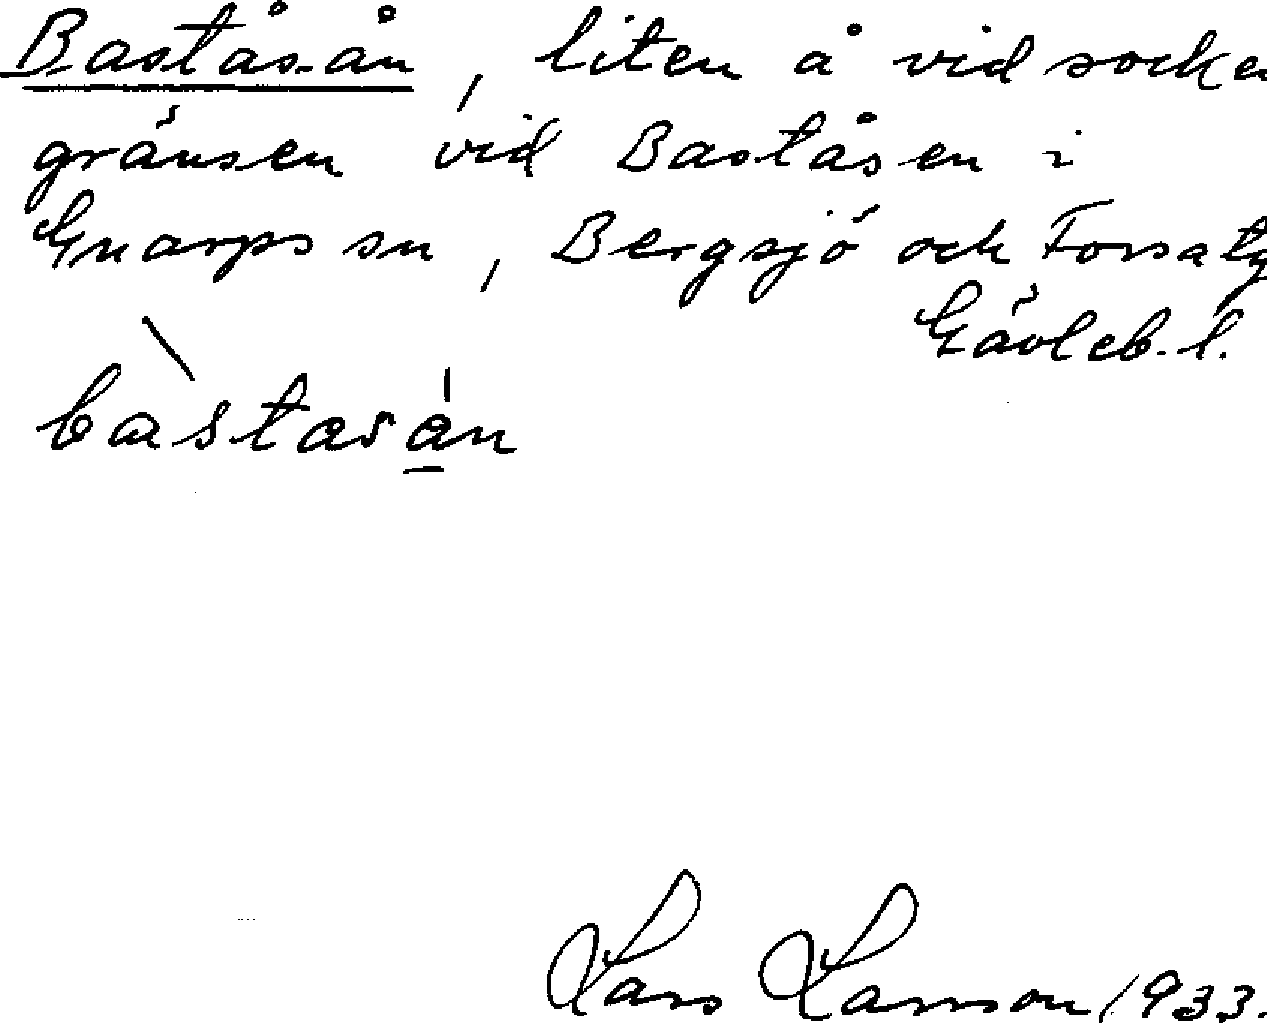 Bastås-ån, liten å vid socken
gränsen vid Baståsen i
Gnarps sn, Bergsjö och Forsa tg
Gävleb. l.
bàstasån
Lars Larsson 1933.